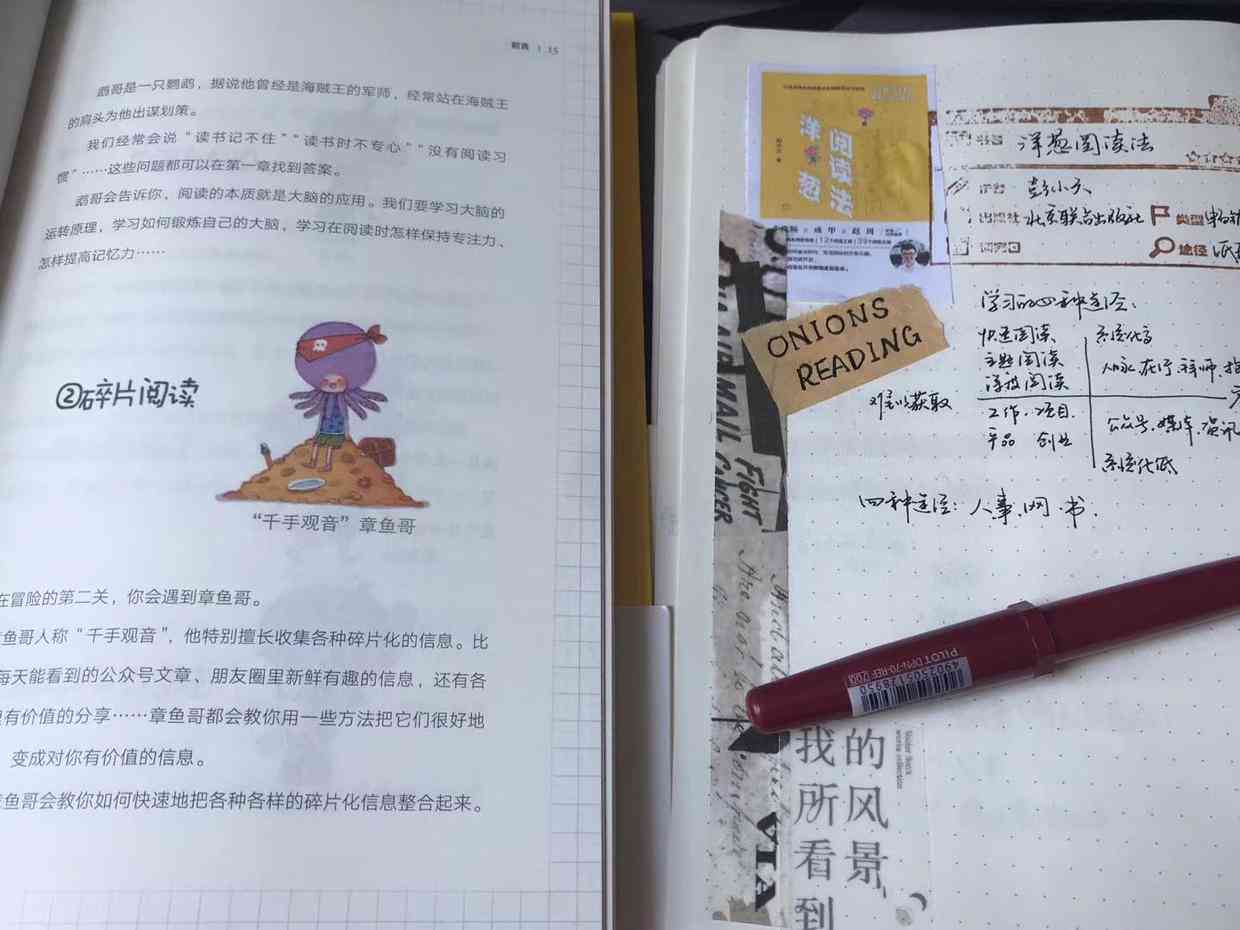 前言 | 15
鹉哥是一只鹦鹉，据说他曾经是海贼王的军师，经常站在海贼王
的肩头为他出谋划策。
我们经常会说“读书记不住”“读书时不专心”“没有阅读习
惯”……这些问题都可以在第一章找到答案。
鹉哥会告诉你，阅读的本质就是大脑的应用。我们要学习大脑的
运转原理，学习如何锻炼自己的大脑，学习在阅读时怎样保持专注力、
怎样提高记忆力……
②碎片阅读
“千手观音”章鱼哥
在冒险的第二关，你会遇到章鱼哥。
鱼哥人称“千手观音”，他特别擅长收集各种碎片化的信息。比
每天能看到的公众号文章、朋友圈里新鲜有趣的信息，还有各
有价值的分享……章鱼哥都会教你用一些方法把它们很好地
变成对你有价值的信息。
鱼哥会教你如何快速地把各种各样的碎片化信息整合起来。
洋葱
阅读法
成甲 赵周
ONIONS
READING
AIR MAIL
FIGHT
CANCER
VIA
洋葱阅读法
彭小六
出版社 北京联合出版社 类型
途径
学习的四种途径：
快速阅读
主题阅读
系统化高
难以获取
工作·项目
产品 创业
公众号、媒体、资讯
系统化低
四种途径：人、事、网、书.
PILOT DPN-70-REF [200]
4902505128950
的风景
我所看到